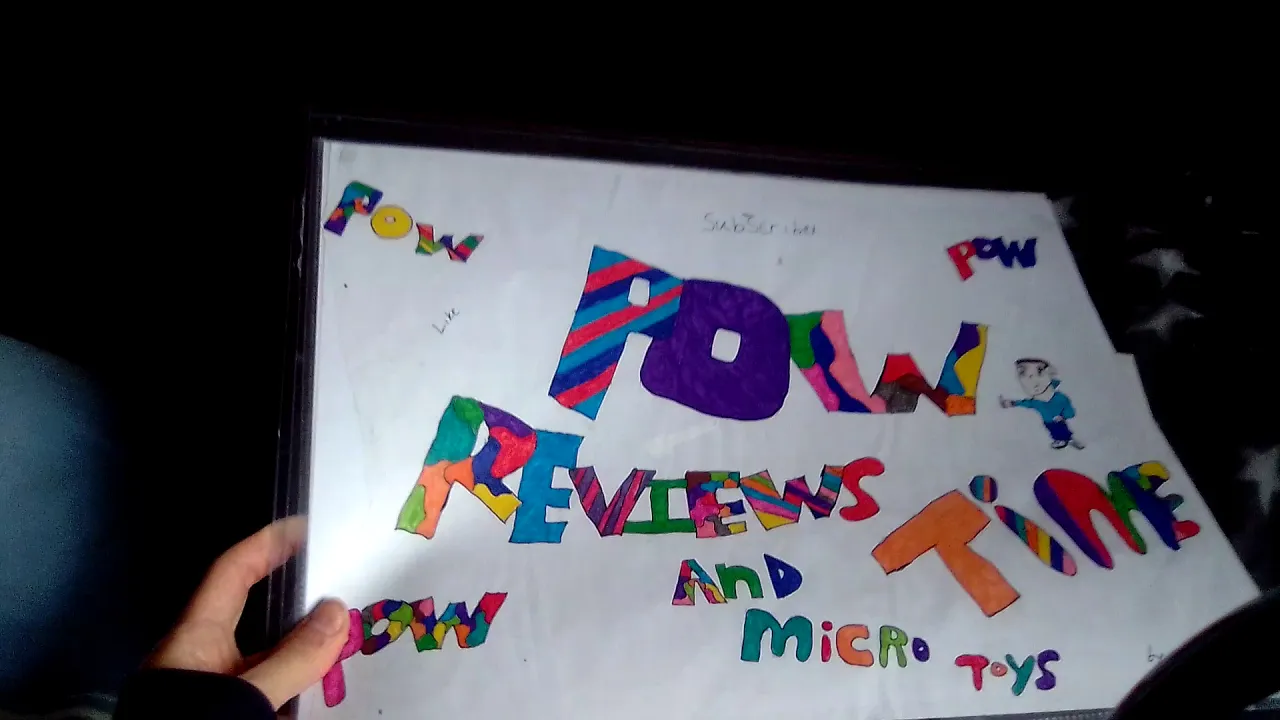 POW
Subscriber
POW
Like
POW
REVIEWS
TiME
AnD
POW
MiCRO
ToYS